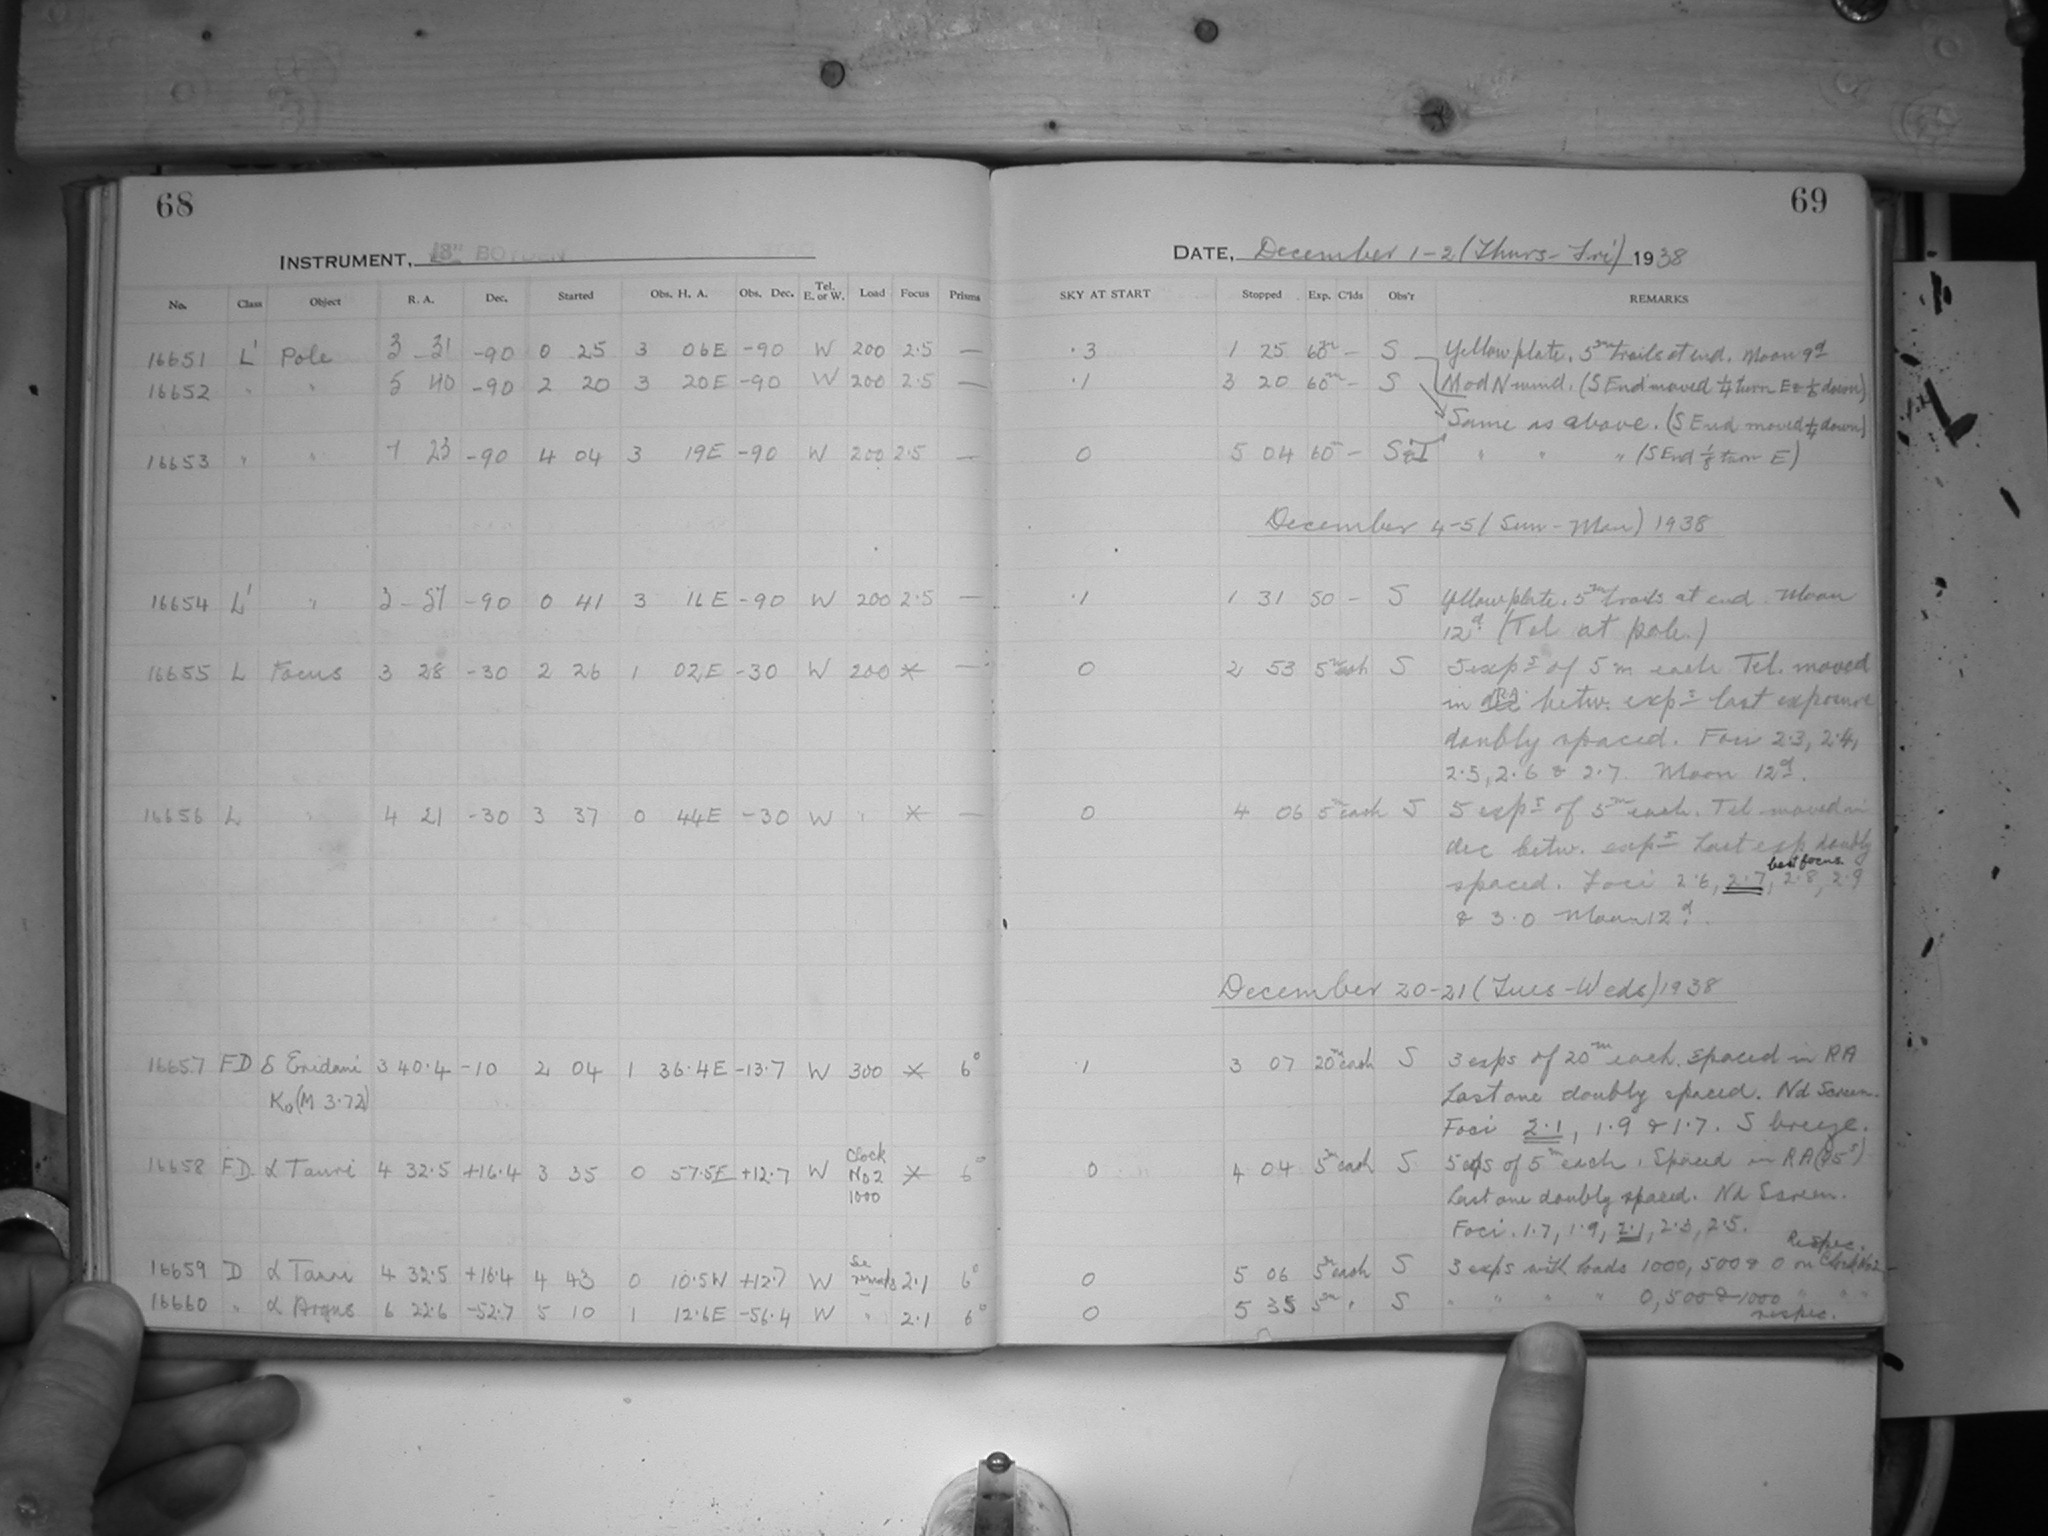 68
69
INSTRUMENT, 13" BOYDEN
DATE, December 1-2 (Thurs-Fri) 1938
No. Class Object R. A. Dec. Started Obs. H. A. Obs. Dec. Tel. E. or W. Load Focus Prisms SKY AT START Stopped Exp. C'lds Obs'r REMARKS
16651 L' Pole 3 31 -90 0 25 3 06E -90 W 200 2.5 — .3 1 25 60m — S Yellow plate. 5m trails at end. Moon 9d
16652 " " 5 40 -90 2 20 3 20E -90 W 200 2.5 — .1 3 20 60m — S Mod N wind. (S End moved 1/4 turn E & 1/8 down)
Same as above. (S End moved 1/4 down)
16653 " " 7 23 -90 4 04 3 19E -90 W 200 2.5 — 0 5 04 60 — S " " " (S End 1/8 turn E)
December 4-5 (Sun-Mon) 1938
16654 L' " 3 57 -90 0 41 3 16E -90 W 200 2.5 — .1 1 31 50 — S Yellow plate. 5m trails at end. Moon
12d (Tel at pole.)
16655 L Focus 3 28 -30 2 26 1 02E -30 W 200 * — 0 2 53 5m each S 5 exps of 5 m each Tel. moved
in RA betw. exps last exposure
doubly spaced. Foci 2.3, 2.4,
2.5, 2.6 & 2.7. Moon 12d.
16656 L " 4 21 -30 3 37 0 44E -30 W " * — 0 4 06 5m each S 5 exps of 5m each. Tel moved in
dec betw. exps Last exp doubly
best focus
spaced. Foci 2.6, 2.7, 2.8, 2.9
& 3.0 Moon 12d.
December 20-21 (Tues-Weds) 1938
16657 FD δ Eridani 3 40.4 -10 2 04 1 36.4E -13.7 W 300 * 6° .1 3 07 20m each S 3 exps of 20m each. Spaced in RA
K0 (M 3.72) Last one doubly spaced. Nd Screen.
Foci 2.1, 1.9 & 1.7. S breeze.
16658 FD. α Tauri 4 32.5 +16.4 3 35 0 57.5E +12.7 W Clock No 2 1000 * 6° 0 4 04 5m each S 5 exps of 5m each. Spaced in RA
Last one doubly spaced. Nd Screen.
Foci. 1.7, 1.9, 2.1, 2.3, 2.5.
16659 D α Tauri 4 32.5 +16.4 4 43 0 10.5W +12.7 W See remarks 2.1 6° 0 5 06 5m each S 3 exps with loads 1000, 500 & 0 on Clock No 2 Respec.
16660 " α Argus 6 22.6 -52.7 5 10 1 12.6E -56.4 W " 2.1 6° 0 5 35 5m " S " " " " 0, 500 & 1000 " " "
respec.